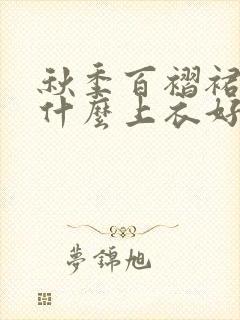 秋季百褶裙
什麼上衣好
夢錦旭